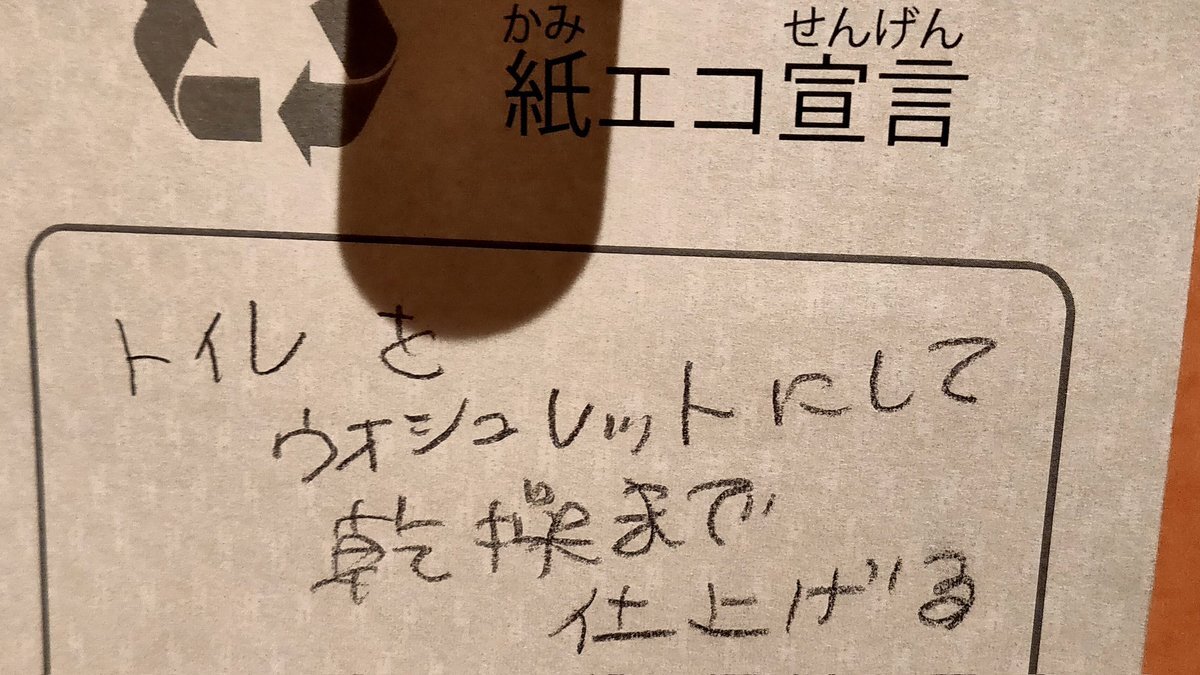 かみ せんげん
紙エコ宣言
トイレを
ウォシュレットにして
乾燥まで
仕上げる